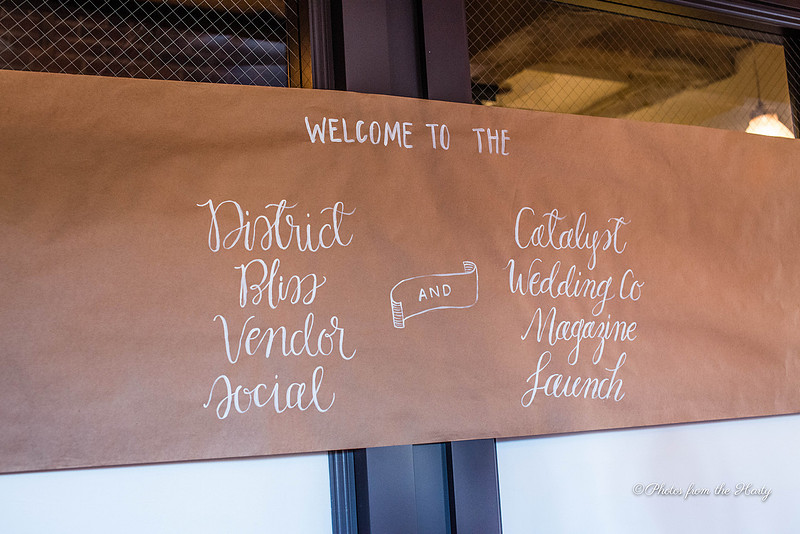 WELCOME TO THE
District
Bliss
Vendor
Social
AND
Catalyst
Wedding Co
Magazine
Launch
©Photos from the Harty